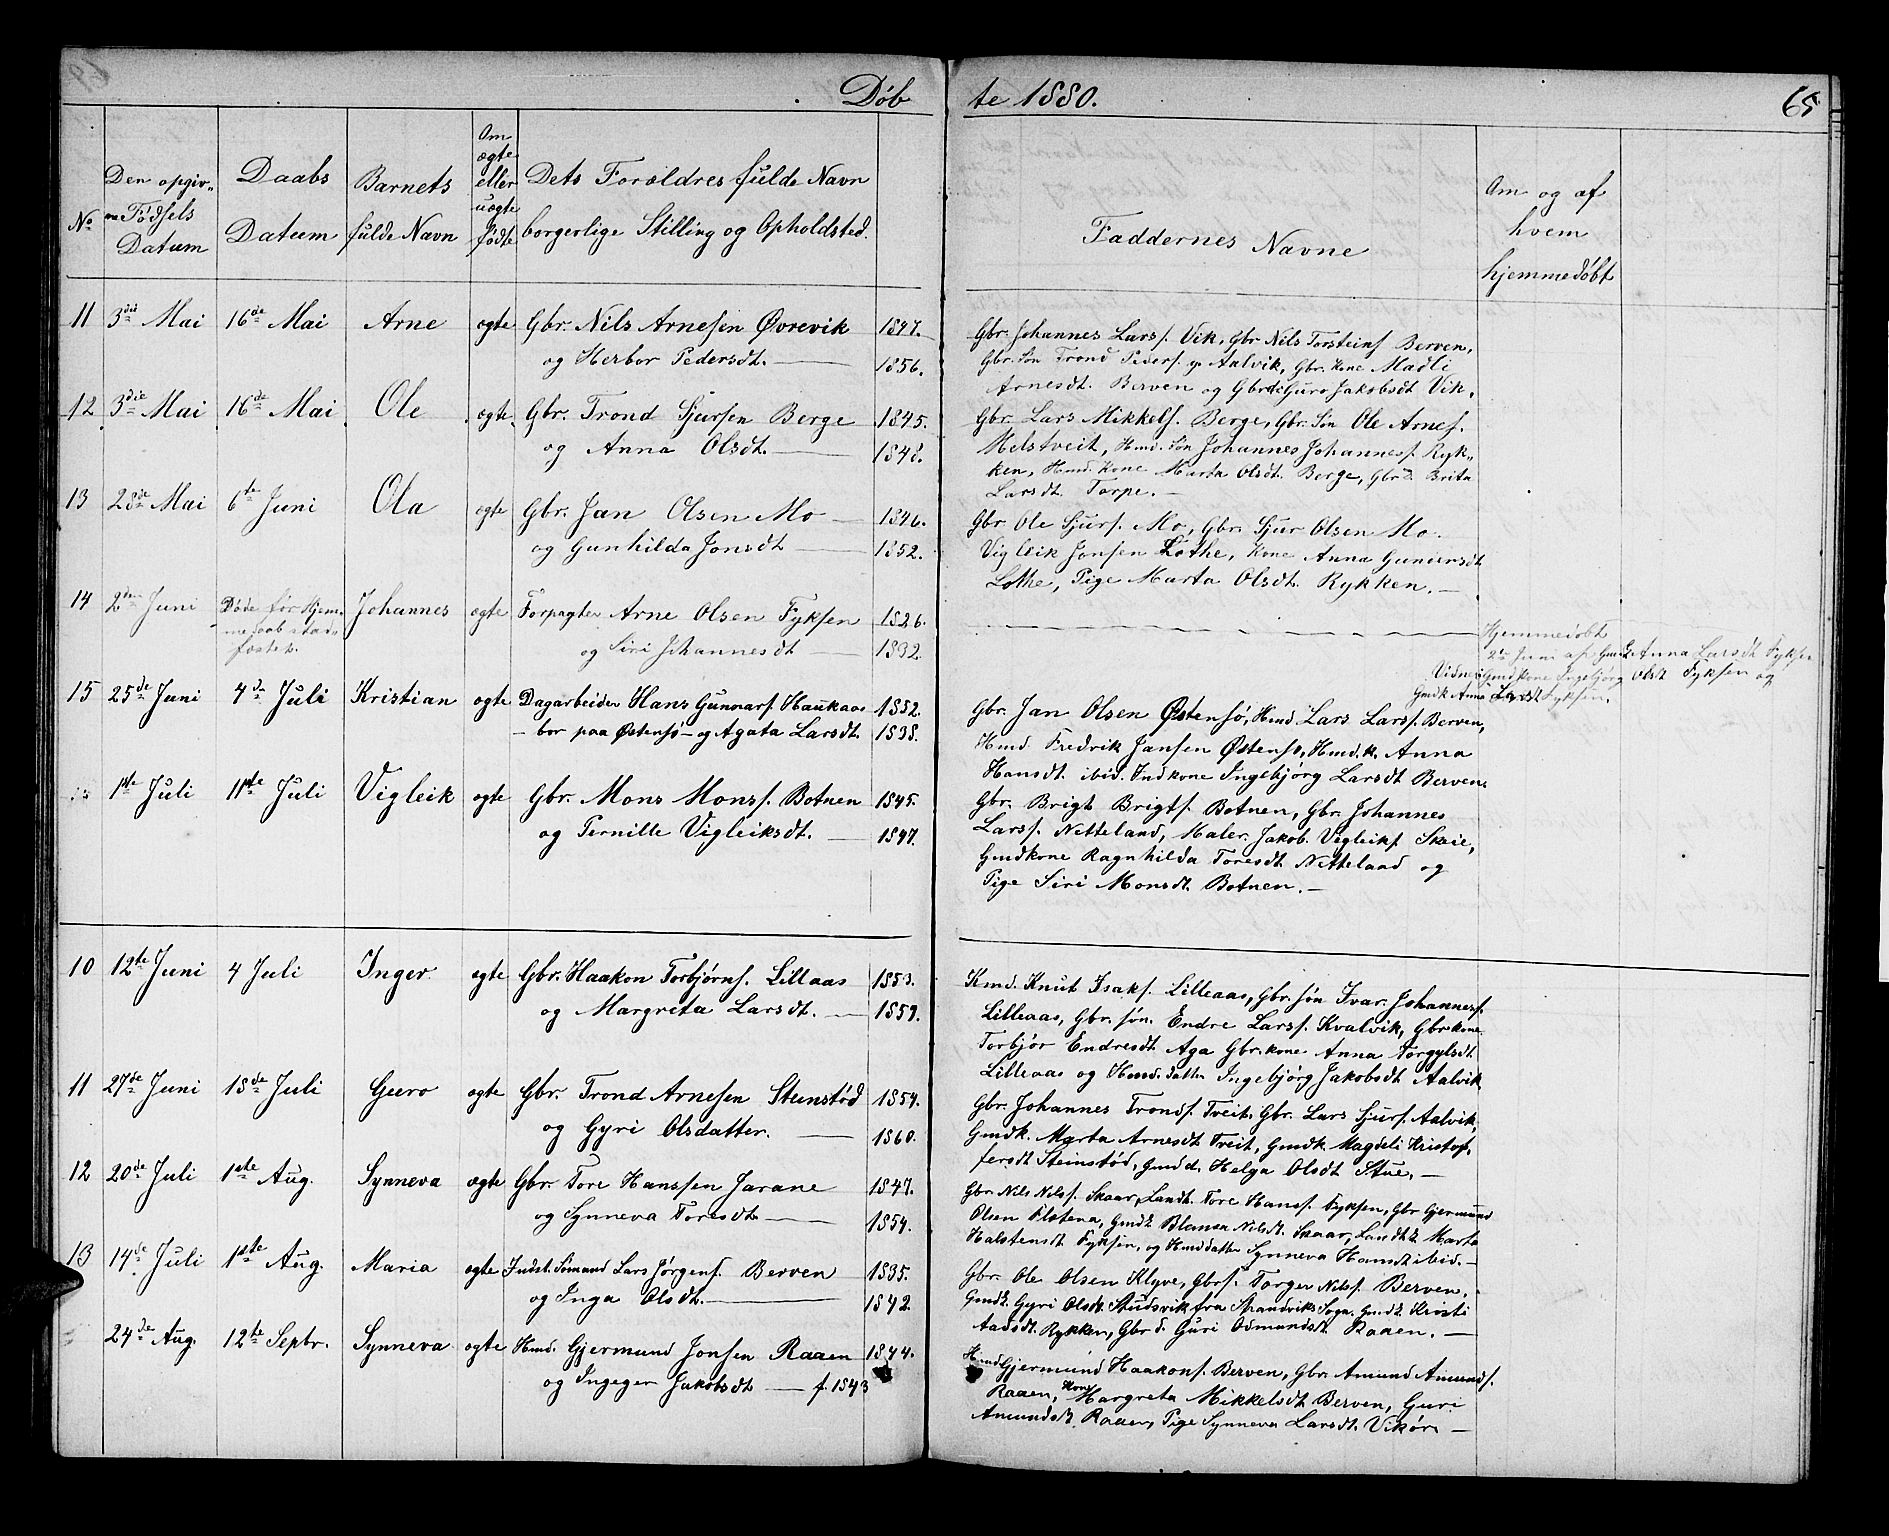 Døbte 1880.
65
No
Den opgivne Fødsels Datum
Daabs Datum
Barnets fulde Navn
Om ægte eller uægte fødte
Dets Forældres fulde Navn borgerlige Stilling og Opholdsted.
Faddernes Navne
Om og af hvem hjemmedøbt
11 3die Mai 16de Mai Arne ægte Gbr. Nils Arnesen Øvrevik 1847.
og Herbor Pedersdt. — 1856.
Gbr. Johannes Lars/. Vik, Gbr Nils Torsteins/ Berven,
Gbr. Søn Trond Peders/. Aalvik, Gbr. Kone Madli
Arnesdt. Berven og Gbrdt Guro Jakobsdt Vik.
12 3die Mai 16de Mai Ole ægte Gbr. Trond Sjursen Berge 1845.
og Anna Olsdt. — 1848.
Gbr. Lars Mikkels/. Berge, Gbr. Søn Ole Arnes/.
Melstveit, Hmd. Søn Johannes Johannes/. Ryk„
ken, Hmd. Kone Marta Olsdt. Berge, Gbrd. Brita
Larsdt. Torpe. —
13 28de Mai 6te Juni Ola ægte Gbr. Jan Olsen Mo — 1846.
og Gunhilda Jonsdt — 1852.
Gbr Ole Sjurs/. Mo, Gbr. Sjur Olsen Mo.
Vigleik Jonsen Lothe, Kone Anna Gunnarsdt
Lothe, Pige Marta Olsdt. Rykken. —
14 2den Juni Døde før Hjem„ Johannes ægte Forpagter Arne Olsen Fyksen 1826.
medaab stad„
fæstet.
og Siri Johannesdt — 1832.
Hjemmedøbt
2de Juni af Gmdk Anna Larsdt Fyksen
Vidner Gmdkone Ingebjørg Olsdt Fyksen og
Gmdk Anna Larsdt Fyksen.
15 25de Juni 4de Juli Kristian ægte Dagarbeider Hans Gunnars/. Haukaas 1852.
— bor paa Østensø — og Agata Larsdt. 1838.
Gbr. Jan Olsen Østensø, Hmd. Lars Lars/. Berven,
Hmd Fredrik Jansen Østensø, Hmd. k. Anna
Hansdt. ibid. Indkone Ingebjørg Larsdt Berven.
1ste Juli 11te Juli Vigleik ægte Gbr. Mons Mons/. Botnen 1845.
og Pernille Vigleiksdt. — 1847.
Gbr. Brigt Brigts/. Botnen, Gbr. Johannes
Lars/. Netteland, Maler. Jakob. Vigleiks/. Skeie,
Gmdkone Ragnhilda Toresdt. Netteland og
Pige Siri Monsdt. Botnen. —
10 12te Juni 4 Juli Inger ægte Gbr. Haakon Torbjørns/. Lillaas 1853.
og Margreta Larsdt. — 1859.
Kmd. Knut Isaks/. Lilleaas, Gbr. søn Ivar Johannes/.
Lilleaas, Gbr. søn. Endre Lars/. Kvalvik, Gbr kone.
Torbjør Endresdt Aga Gbr. kone Anna Torgylsdt
Lilleaas og Hmd. datter Ingebjørg Jakobsdt Aalvik
11 27de Juni 18de Juli Guro ægte Gbr. Trond Arnesen Steinstød 1854.
og Gyri Olsdatter. — 1860.
Gbr. Johannes Tronds/. Tveit, Gbr. Lars Sjurs/. Aalvik,
Gmdk. Marta Arnesdt Tveit, Gmdk. Magdeli Kristof„
fersdt Steinstød, Gmd d. Helga Olsdt Stue. —
12 20de Juli 1ste Aug. Synneva ægte Gbr. Tore Hanssen Jarane 1847.
og Synneva Toresdt — 1854.
Gbr. Nils Nils/. Skaar, Landt. Tore Hans/. Fyksen, Gbr Gjermund
Olsen Flotena, Gmdk Blansa Nilsdt. Skaar, Landtk Marta
Halstensdt Fyksen, og Hmd datter Synneva Hansdt ibid. —
13 14de Juli 1ste Aug. Maria ægte Indst. Sømand Lars Jørgens/. Berven 1835.
og Inga Olsdt. — 1842.
Gbr. Ole Olsen Klyve, Gbrs/. Torger Nils/. Berven,
Gmdk. Gyri Olsdt. Studsvik fra Strandviks Sogn. Gmdk Kristi
Aadsdt. Rykken, Gbr d. Guri Odmundsdt Raaen. —
24de Aug. 12te Septbr. Synneva ægte Hmd. Gjermund Jonsen Raaen 1844.
og Ingeger Jakobsdt — f. 1843
Hmd Gjermund Haakons/. Berven, Gbr. Amund Amunds/.
Raaen, Kone Margreta Mikkelsdt Berven, Guri
Amundsdt. Raaen, Pige Synneva Larsdt. Vikør. —